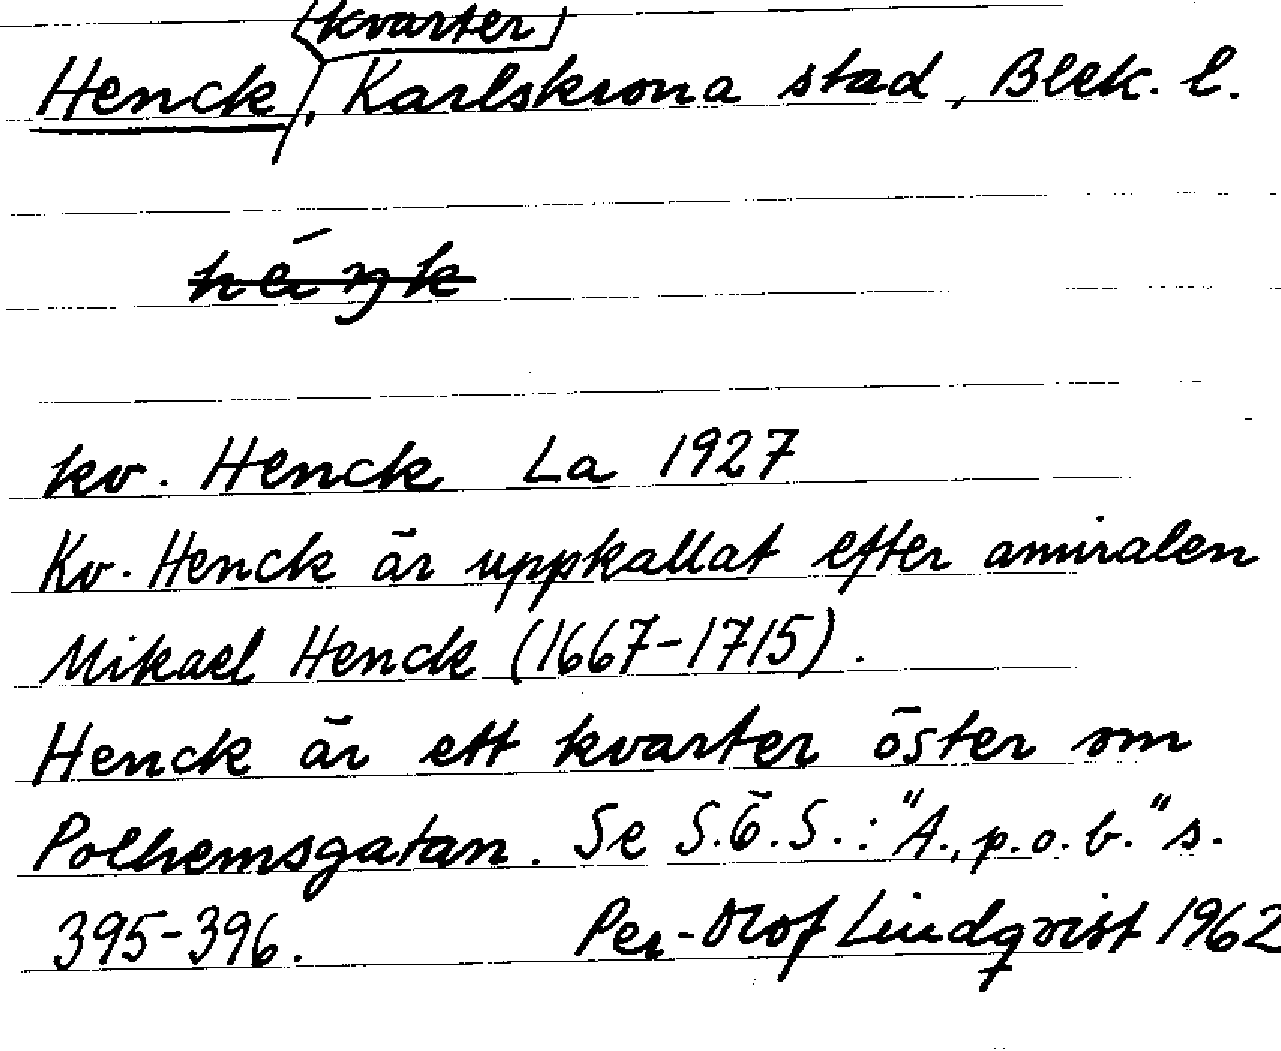 kvarter
Henck, Karlskrona stad, Blek. l.
kv. Henck La 1927
Kv. Henck är uppkallat efter amiralen
Mikael Henck (1667-1715).
Henck är ett kvarter öster om
Polhemsgatan. Se S.Ö.S.: "A., p.o.b." s.
395-396. Per-Olof Lindqvist 1962